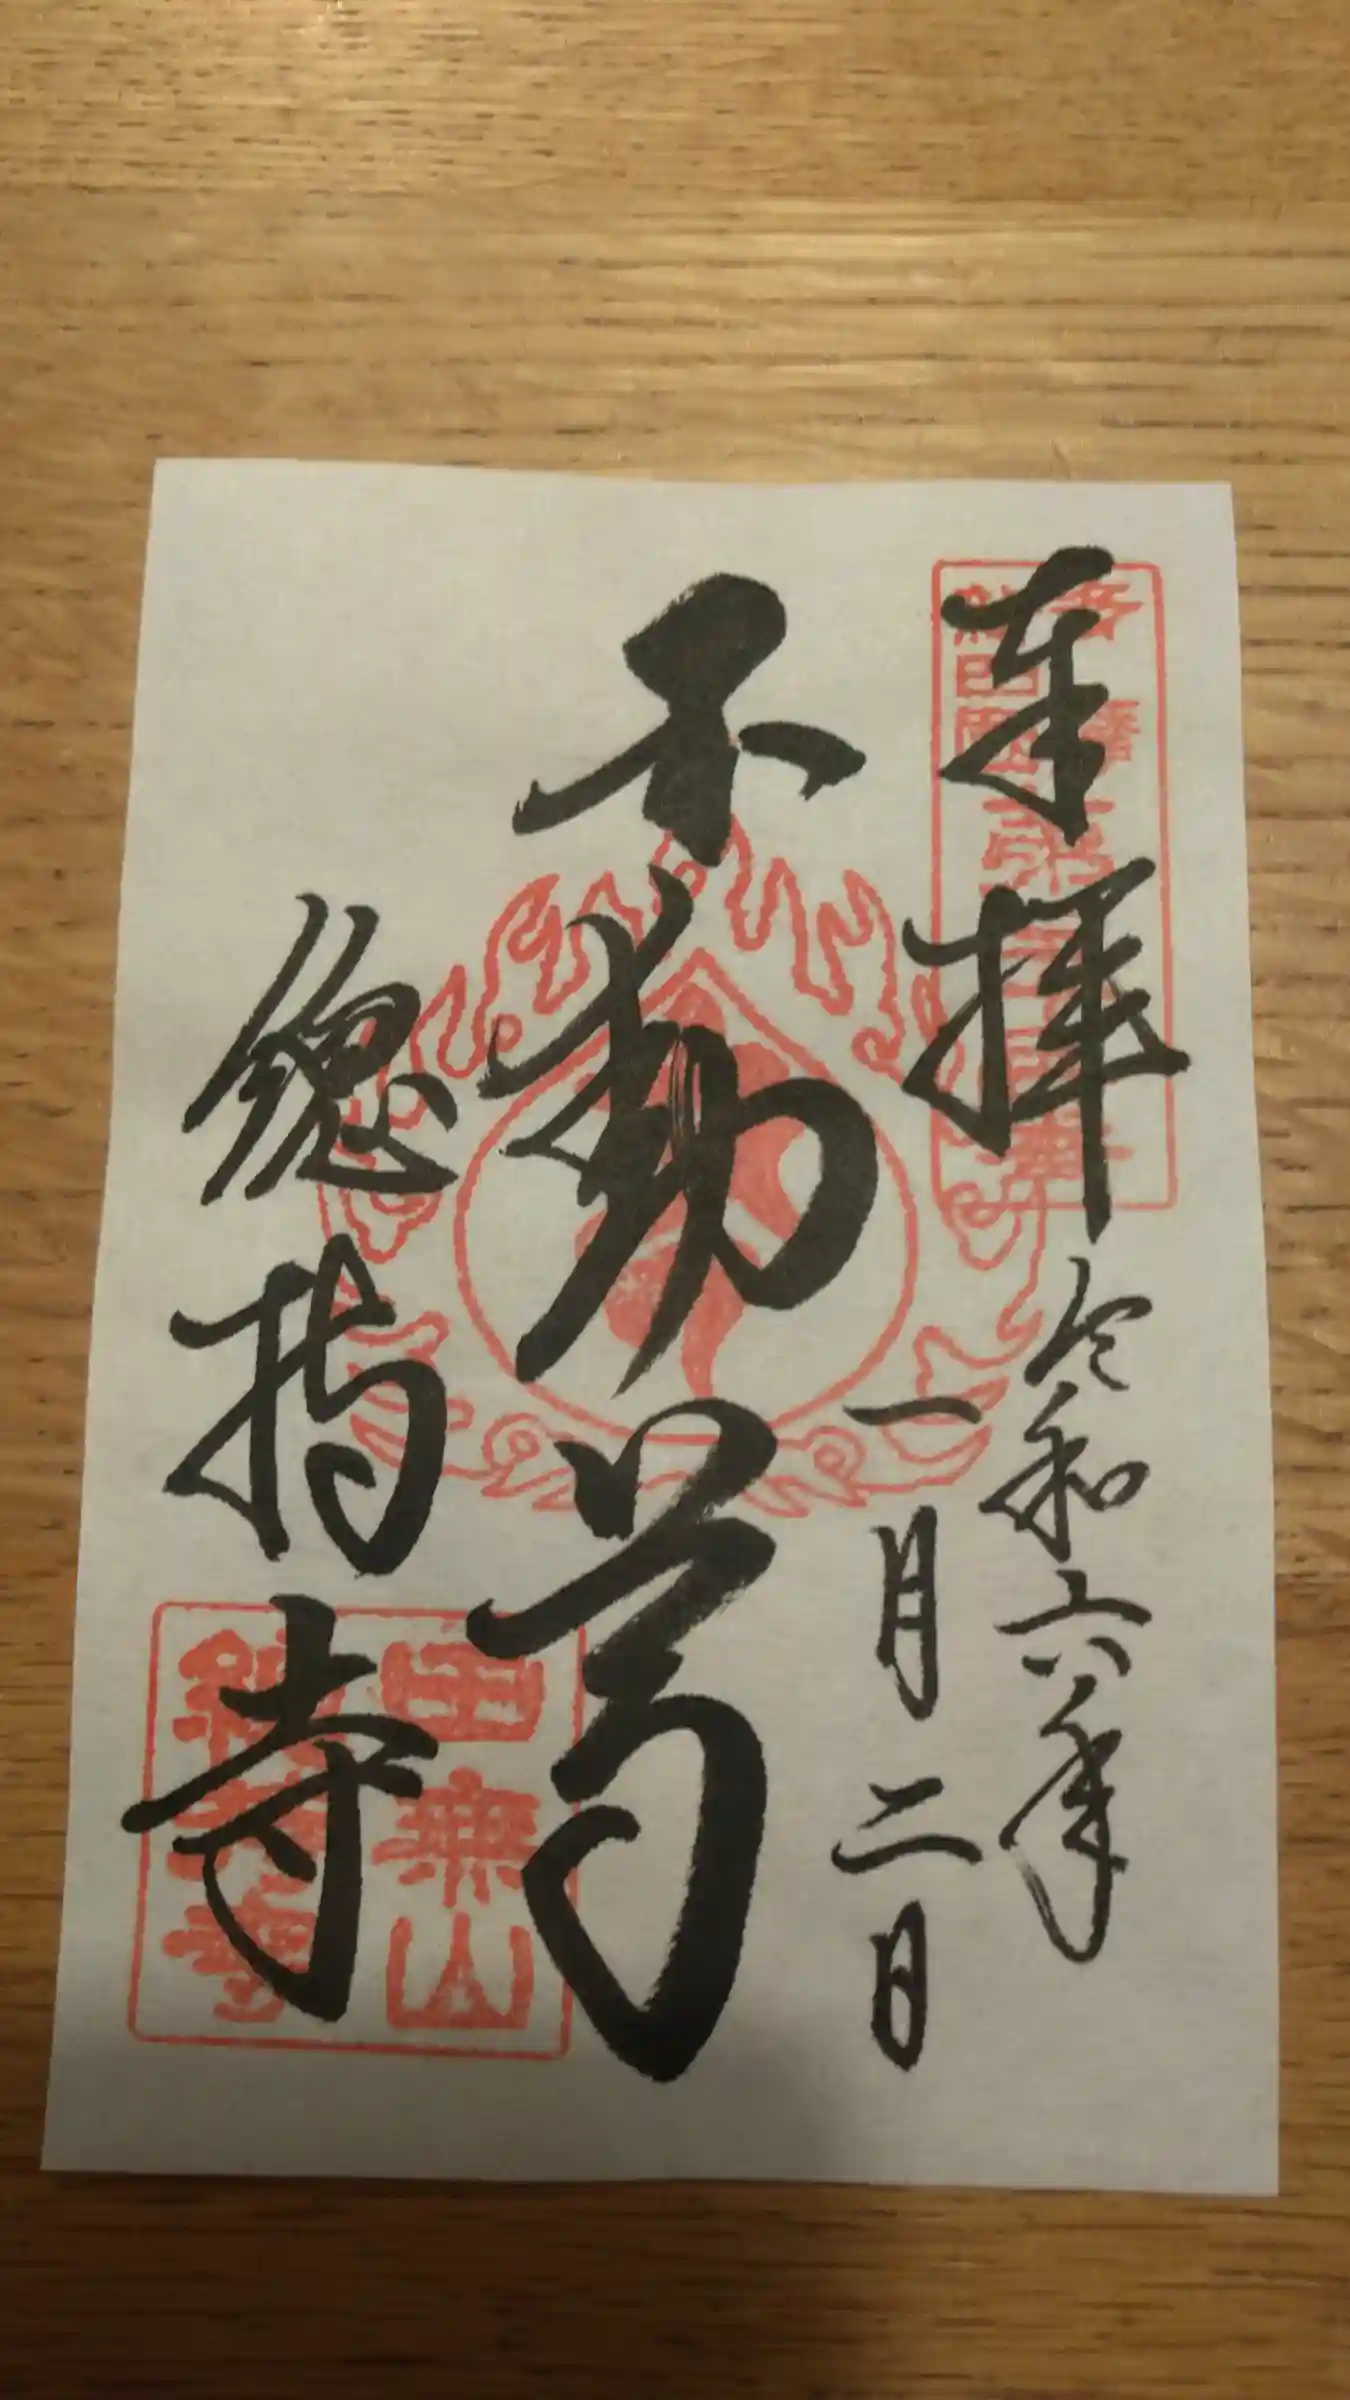 奉拝
令和六年
一月二日
不動尊
總持寺
田無山
總持寺